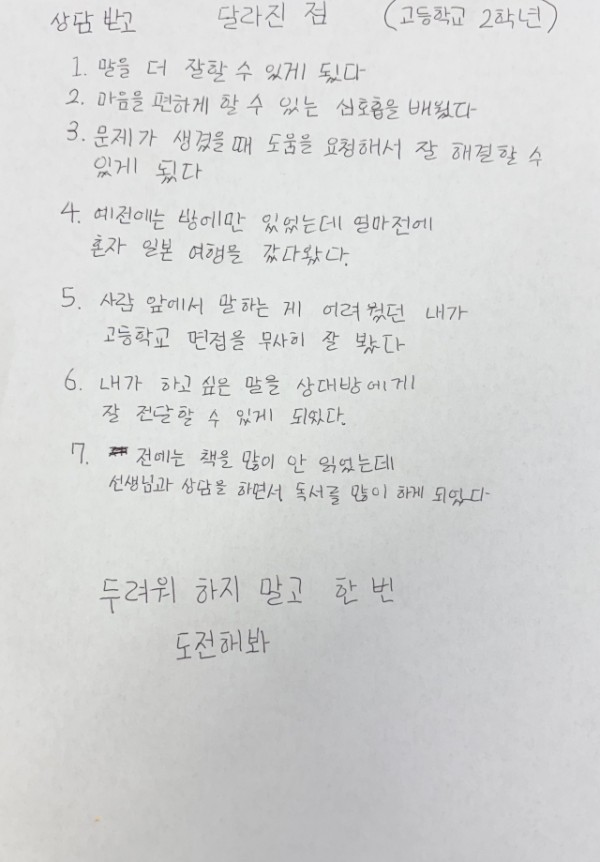 상담 받고 달라진 점 (고등학교 2학년)
1. 말을 더 잘할 수 있게 됬다
2. 마음을 편하게 할 수 있는 심호흡을 배웠다
3. 문제가 생겼을 때 도움을 요청해서 잘 해결할 수
있게 됬다
4. 예전에는 방에만 있었는데 얼마전에
혼자 일본 여행을 갔다왔다.
5. 사람 앞에서 말하는 게 어려웠던 내가
고등학교 면접을 무사히 잘 봤다
6. 내가 하고 싶은 말을 상대방에게
잘 전달할 수 있게 되었다.
7. 전에는 책을 많이 안 읽었는데
선생님과 상담을 하면서 독서를 많이 하게 되었다
두려워 하지 말고 한 번
도전해봐